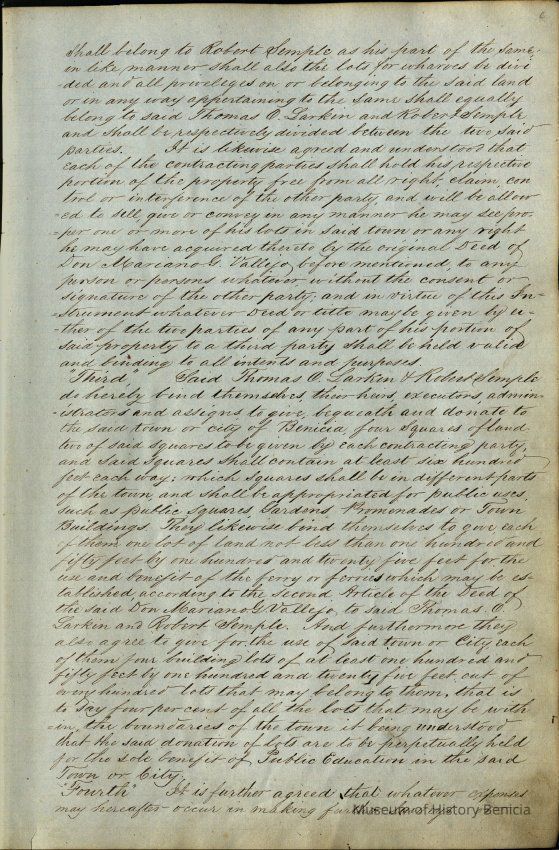 Shall belong to Robert Semple as his part of the same,
in like manner shall also the lots for wharves be divi-
ded and all privileges on or belonging to the said land
or in any way appertaining to the same shall equally
belong to said Thomas O. Larkin and Robert Semple
and shall be respectively divided between the two said
parties. It is likewise agreed and understood that
each of the contracting parties shall hold his respective
portion of the property free from all right claim, con
trol or interference of the other party, and will be allow
=ed to sell, give or convey in any manner he may see pro-
per one or more of his lots in said town or any right
he may have acquired thereto by the original Deed of
Don Mariano G. Vallejo, before mentioned, to any
person or persons whatever without the consent or
signature of the other party, and in virtue of this In-
=strument whatever Deed or title may be given by ei-
=ther of the two parties of any part of his portion of
said property to a third party shall be held valid
and binding to all intents and purposes.
"Third," Said Thomas O. Larkin & Robert Semple
do hereby bind themselves, their heirs, executors, admin-
istrators and assigns to give, bequeath and donate to
the said town or city of Benicia four Squares of land
two of said squares to be given by each contracting party,
and said squares shall contain at least six hundred
feet each way; which squares shall be in different parts
of the town, and shall be appropriated for public uses,
such as public Squares, Gardens, Promenades or Town
Buildings. They likewise bind themselves to give each
of them one lot of land not less than one hundred and
fifty feet by one hundred and twenty five feet for the
use and benefit of the ferry or ferries which may be es-
tablished, according to the second Article of the Deed of
the said Don Mariano G. Vallejo, to said Thomas. O.
Larkin and Robert Semple. And furthermore they
also agree to give for the use of said town or City, each
of them four building lots of at least one hundred and
fifty feet by one hundred and twenty five feet out of
every hundred lots that may belong to them, that is
to say four per cent of all the lots that may be with
=in the boundaries of the town it being understood
that the said donation of lots are to be perpetually held
for the sole benefit of Public Education in the said
Town or City.
"Fourth" It is further agreed that whatever expenses
may hereafter occur in making further
Museum of History Benicia